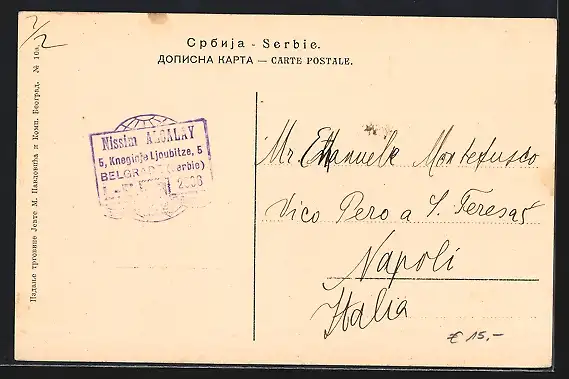 1/2
Србија - Serbie.
ДОПИСНА КАРТА — CARTE POSTALE.
Издање трговине Јевте М. Павловића и Комп. Београд. № 10а.
Nissim ALCALAY
5, Kneginje Ljoubitze, 5
BELGRADE (Serbie)
Mr Emanuele Montefusco
Vico Pero a S. Teresa
Napoli
Italia
€ 15,-